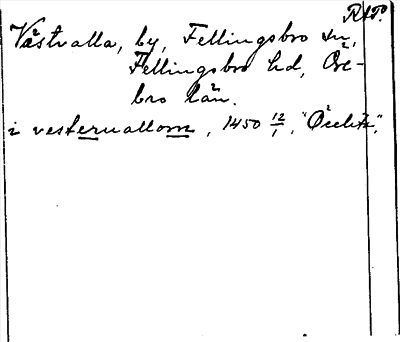 RAP.
Västvalla, by, Fellingsbro sn,
Fellingsbro hd, Öre-
bro län.
i vesteruallom, 1450 12/1,